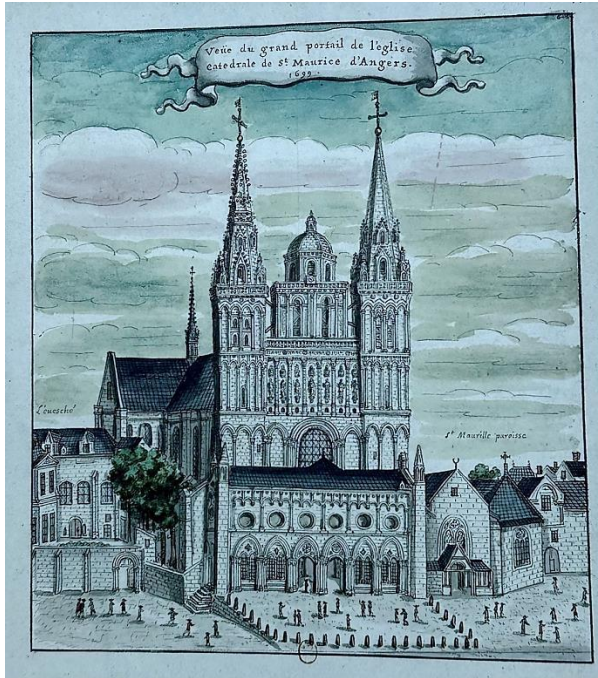 Veüe du grand portail de l'eglise
catedrale de St. Maurice d'Angers.
1699.
L'euesché
St Maurille paroisse